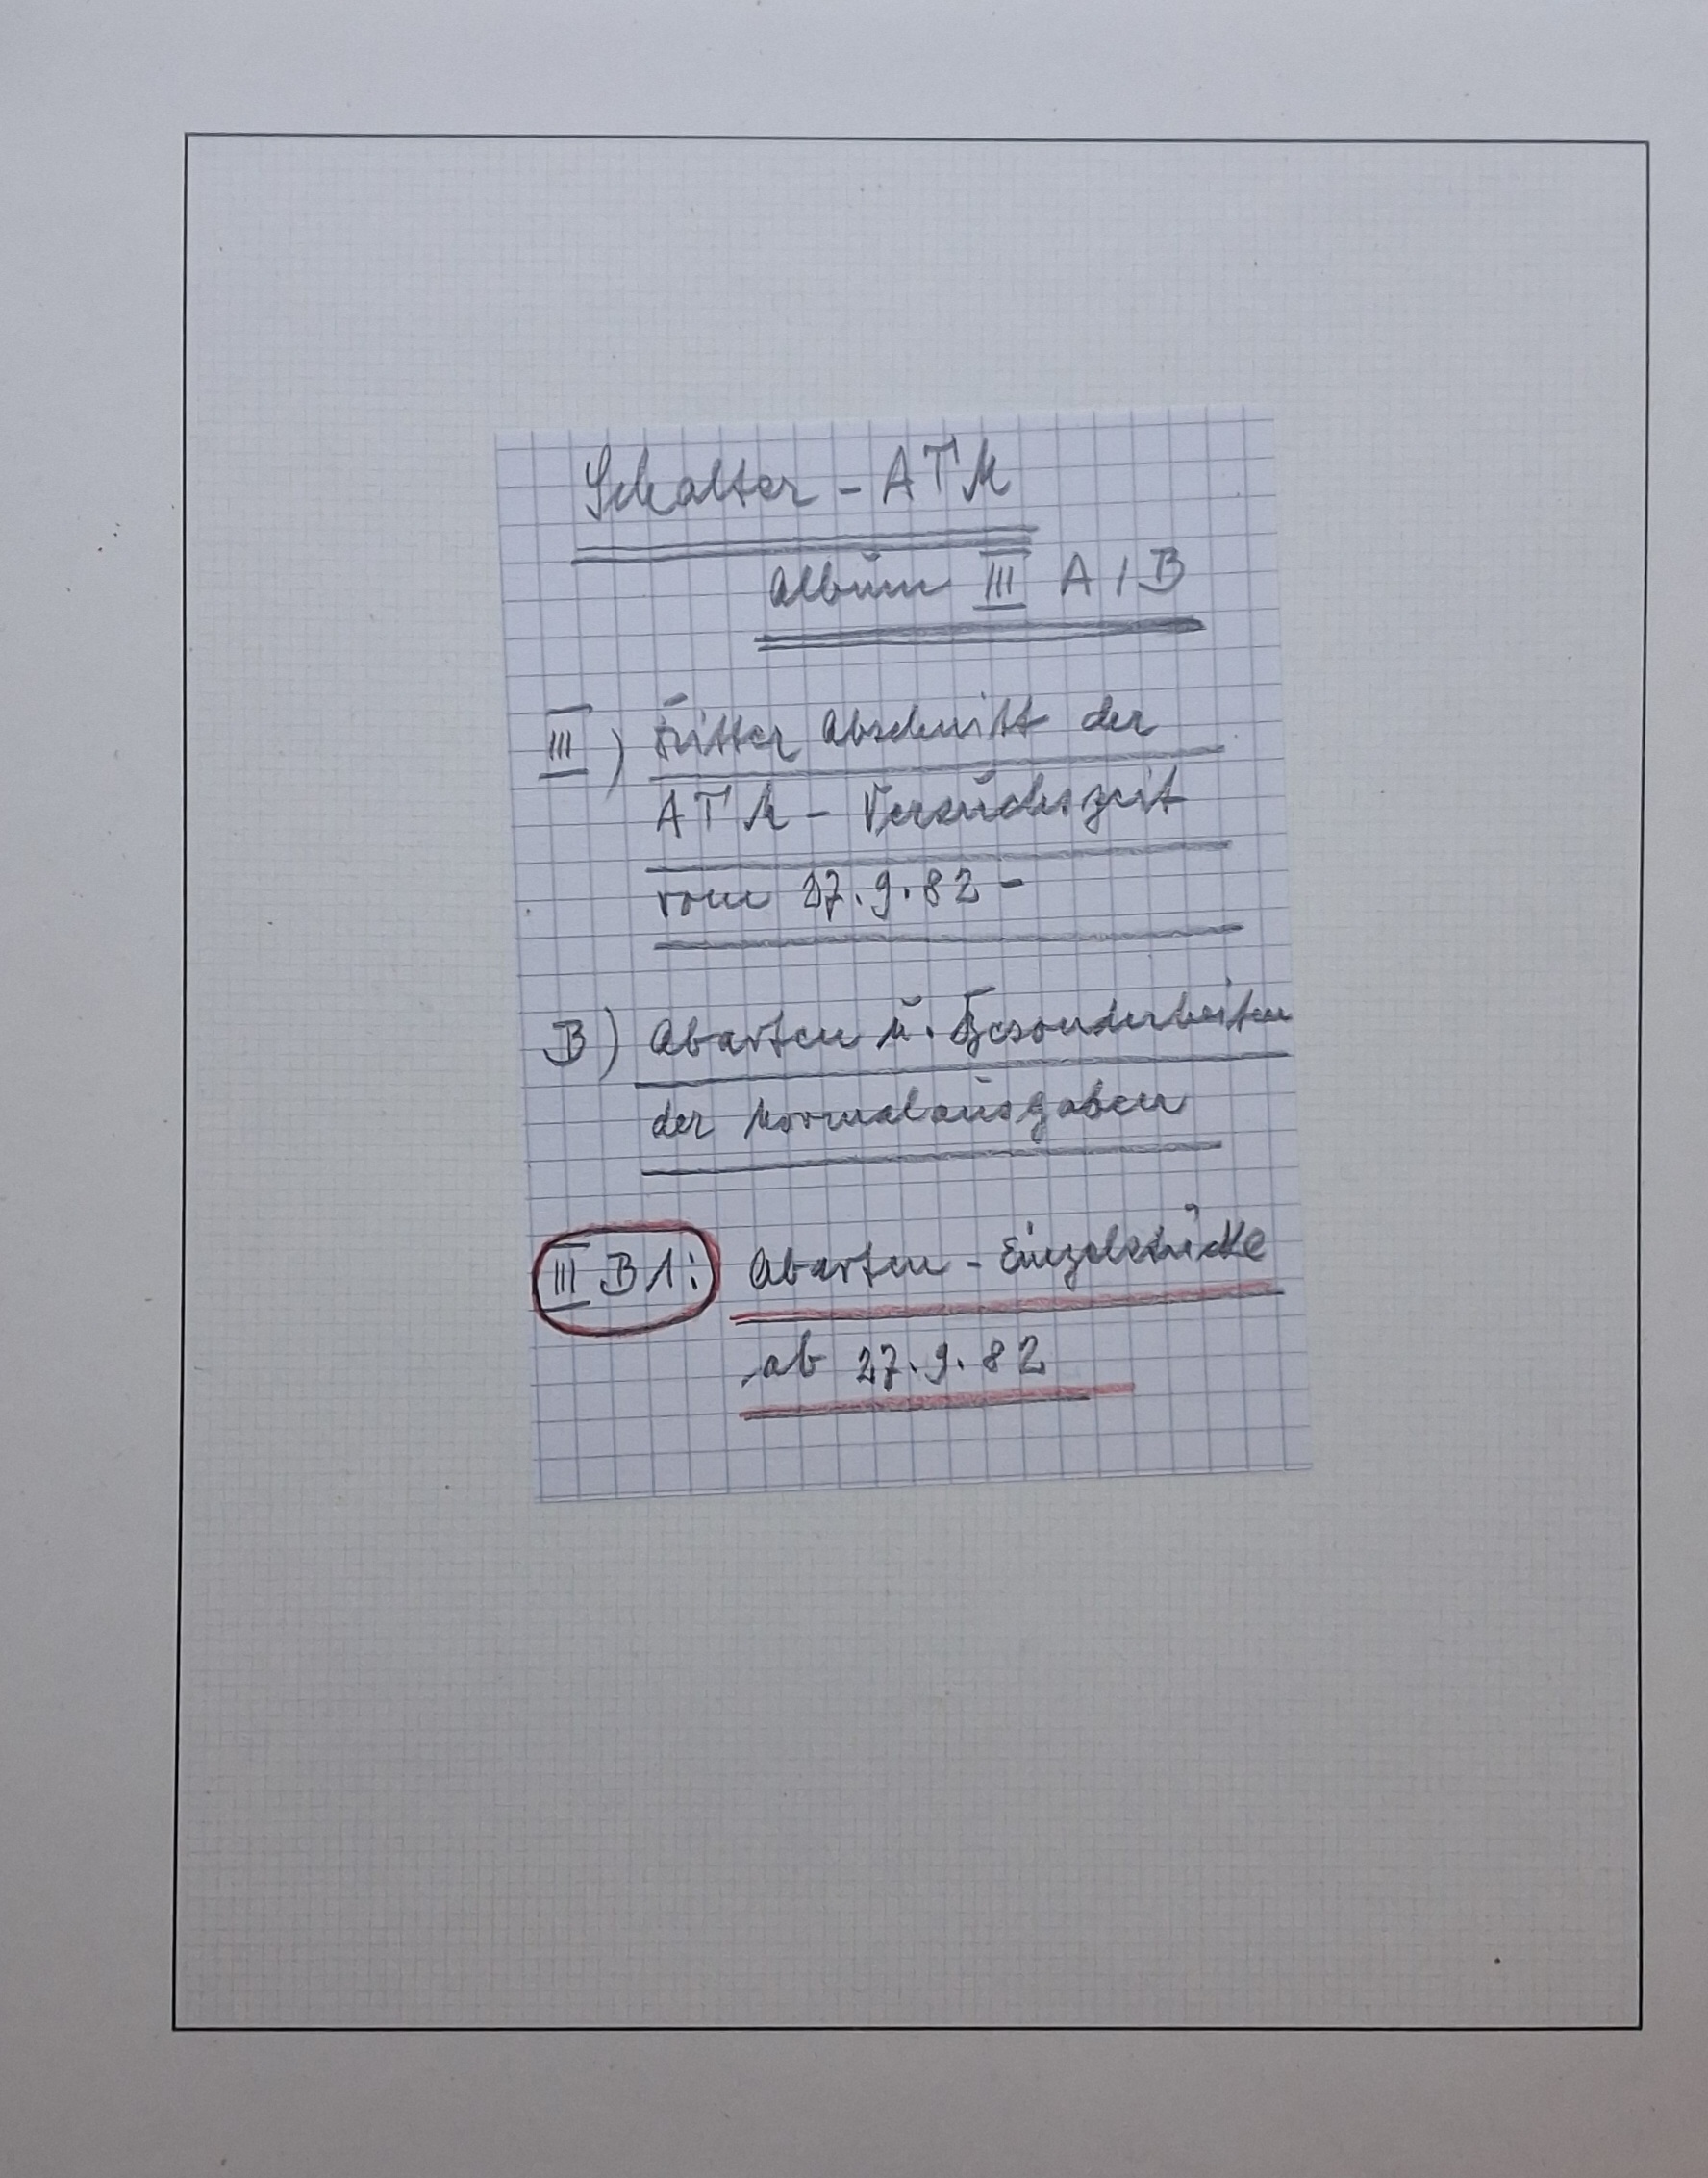 Schalter - ATM
Album III A/B
III) Dritter Abschnitt der
ATM - Versuchszeit
vom 27.9.82 -
B) Abarten u. Besonderheiten
der Normalausgaben
III B1: Abarten - Einzelstücke
ab 27.9.82